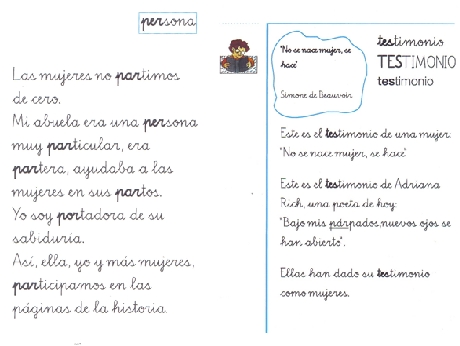 persona
Las mujeres no partimos
de cero.
Mi abuela era una persona
muy particular, era
partera, ayudaba a las
mujeres en sus partos.
Yo soy portadora de su
sabiduría.
Así, ella, yo y más mujeres,
participamos en las
páginas de la historia.
"No se nace mujer, se
hace"
Simone de Beauvoir
testimonio
TESTIMONIO
testimonio
Este es el testimonio de una mujer:
"No se nace mujer, se hace"
Este es el testimonio de Adriana
Rich, una poeta de hoy:
"Bajo mis párpados, nuevos ojos se
han abierto".
Ellas han dado su testimonio
como mujeres.